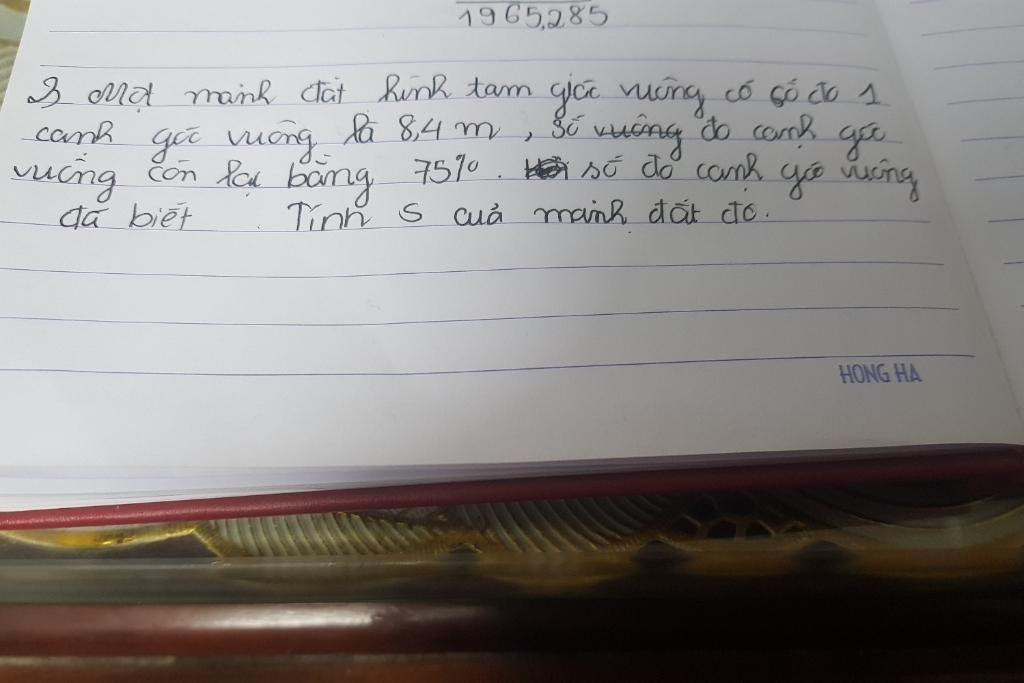 1965,285
3 Một mảnh đất hình tam giác vuông có số đo 1
cạnh góc vuông là 8,4 m, số vuông đo cạnh góc
vuông còn lại bằng 75%. số đo cạnh góc vuông
đã biết. Tính S của mảnh đất đó.
HONG HA